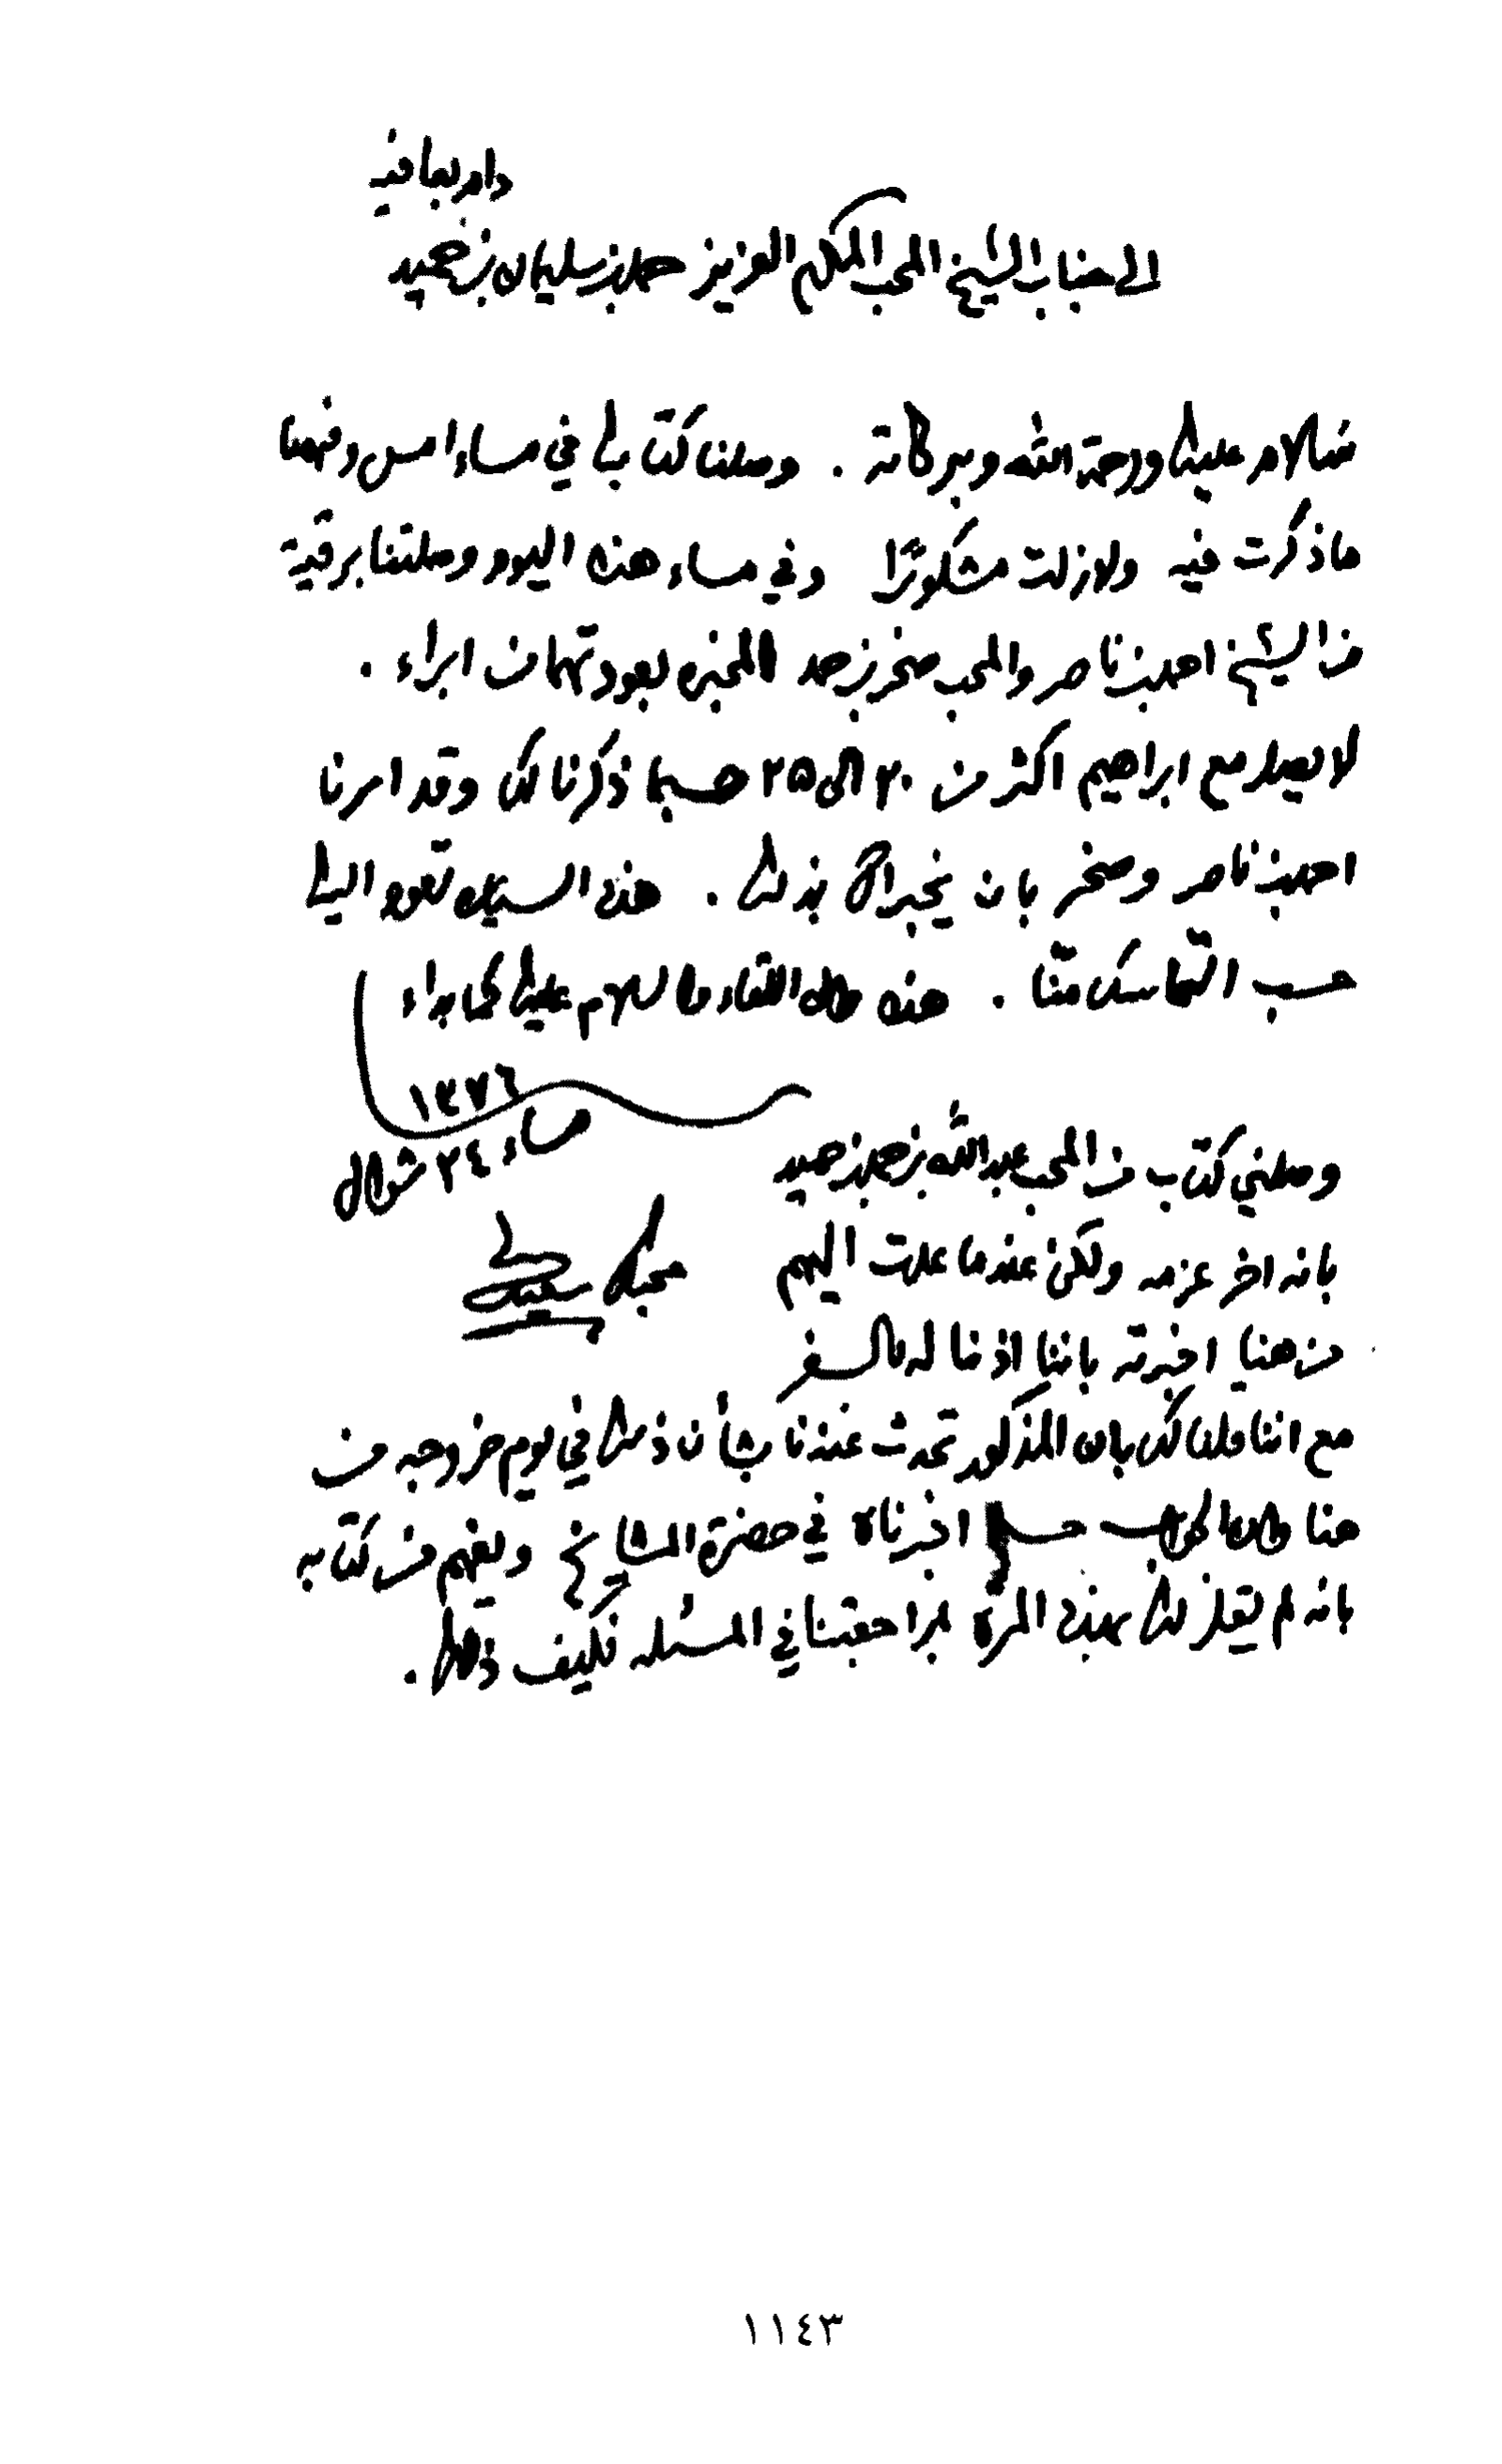 دام بعافية
الى جناب الشيخ المحب المكرم العزيز حمد بن سليمان بن حميد
سلام عليك ورحمة الله وبركاته . وصلنا كتابك في مساء امس وفهمنا
ما ذكرت فيه ولازلت مشكورًا وفي مساء هذا اليوم وصلتنا برقية
من الشيخ احمد بن ناصر والمحب صخر بن حمد المخبره بعودتهما من ابراء .
لا يصل مع ابراهيم اكثر من ٢٠ الى ٢٥ حسبما ذكرنا لك وقد امرنا
احمد بن ناصر وصخر بان يخبراك بذلك . هذه السياره تعود اليك
حسب التماسك منا . هذه
والسلام عليك
١٣٧٦
مساء ٢٤ شوال
وصلني كتاب من المحب عبدالله بن حمد بن حميد
محبك سعيد
بانه اخر عزمه ولكن عندما علمت اليهم
من هنا اخبرته باننا اذنا له بالسفر
مع اننا قلنا لك بان المذكور تحدث عندنا بشأن ذلك في يوم خروجه من
هنا اخبرناه في حضرة المشايخ ويفهم من كتابه
بانه لم يقل لك بهذه المرة بمراجعتنا في المسئله فكيف ذلك .
١١٤٣